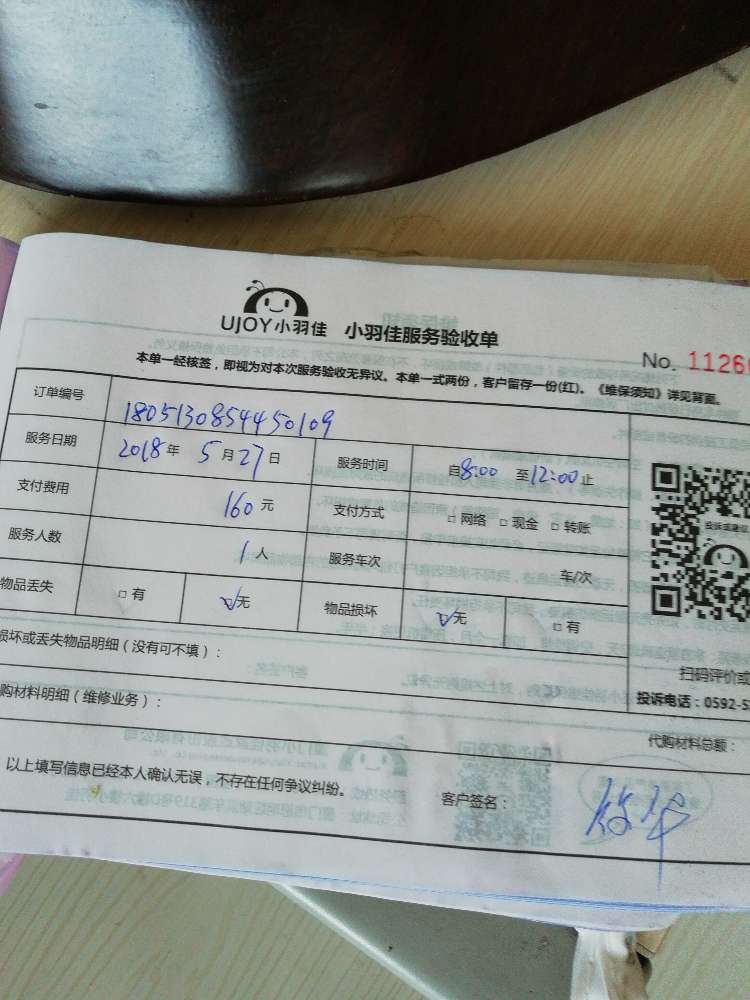 UJOY小羽佳 小羽佳服务验收单
No. 1126
本单一经核签，即视为对本次服务验收无异议。本单一式两份，客户留存一份(红)。《维保须知》详见背面。
订单编号 1805130854450109
服务日期 2018年 5月27日 服务时间 自8:00 至12:00止
支付费用 160元 支付方式 □网络 □现金 □转账
服务人数 1人 服务车次 车/次
物品丢失 □有 ☑无 物品损坏 ☑无 □有
投诉或建议
扫码评价或
投诉电话：0592-5
损坏或丢失物品明细（没有可不填）：
购材料明细（维修业务）：
代购材料总额：
以上填写信息已经本人确认无误，不存在任何争议纠纷。
客户签名：